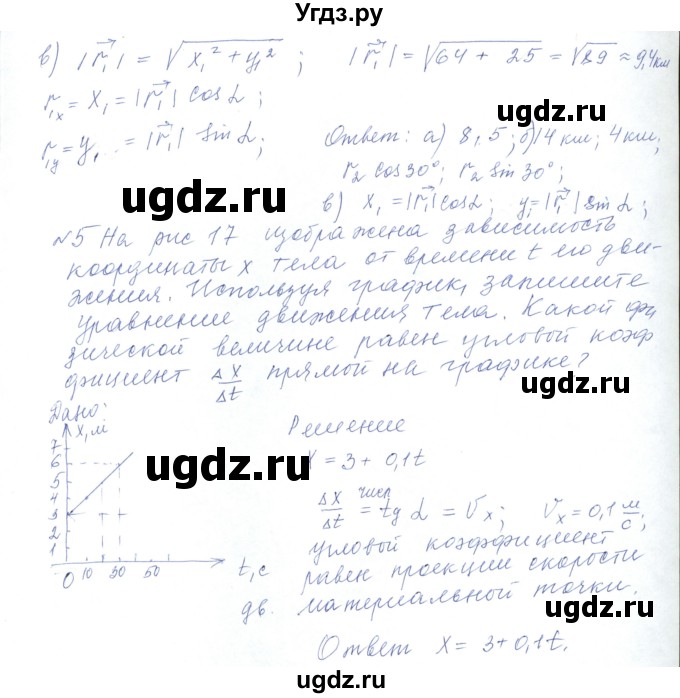 Угдз.ру
в) |r₁| = √x₁² + y₁² ; |r₁| = √64 + 25 = √89 ≈ 9,4 км
r₁ₓ = x₁ = |r₁| cos α ;
r₁y = y₁ = |r₁| sin α ;
Ответ: а) 8, 5 ; б) 14 км ; 4 км ;
r₂ cos 30° ; r₂ sin 30° ;
в) x₁ = |r₁| cos α ; y₁ = |r₁| sin α ;
ugdz.ru
ugdz.ru
№5 На рис 17 изображена зависимость
координаты x тела от времени t его дви-
жения. Используя график, запишите
уравнение движения тела. Какой фи
зической величине равен угловой коэф
фициент Δx/Δt прямой на графике?
ugdz.ru
Дано:
x, м
7
6
5
4
3
2
1
0 10 30 50 t, с
Решение
x = 3 + 0,1t
Δx/Δt числ = tg α = vₓ ; vₓ = 0,1 м/с ;
угловой коэффициент
равен проекции скорости
дв. материальной точки.
Ответ x = 3 + 0,1t.
ugdz.ru
ugdz.ru
ugdz.ru
Угдз.ру